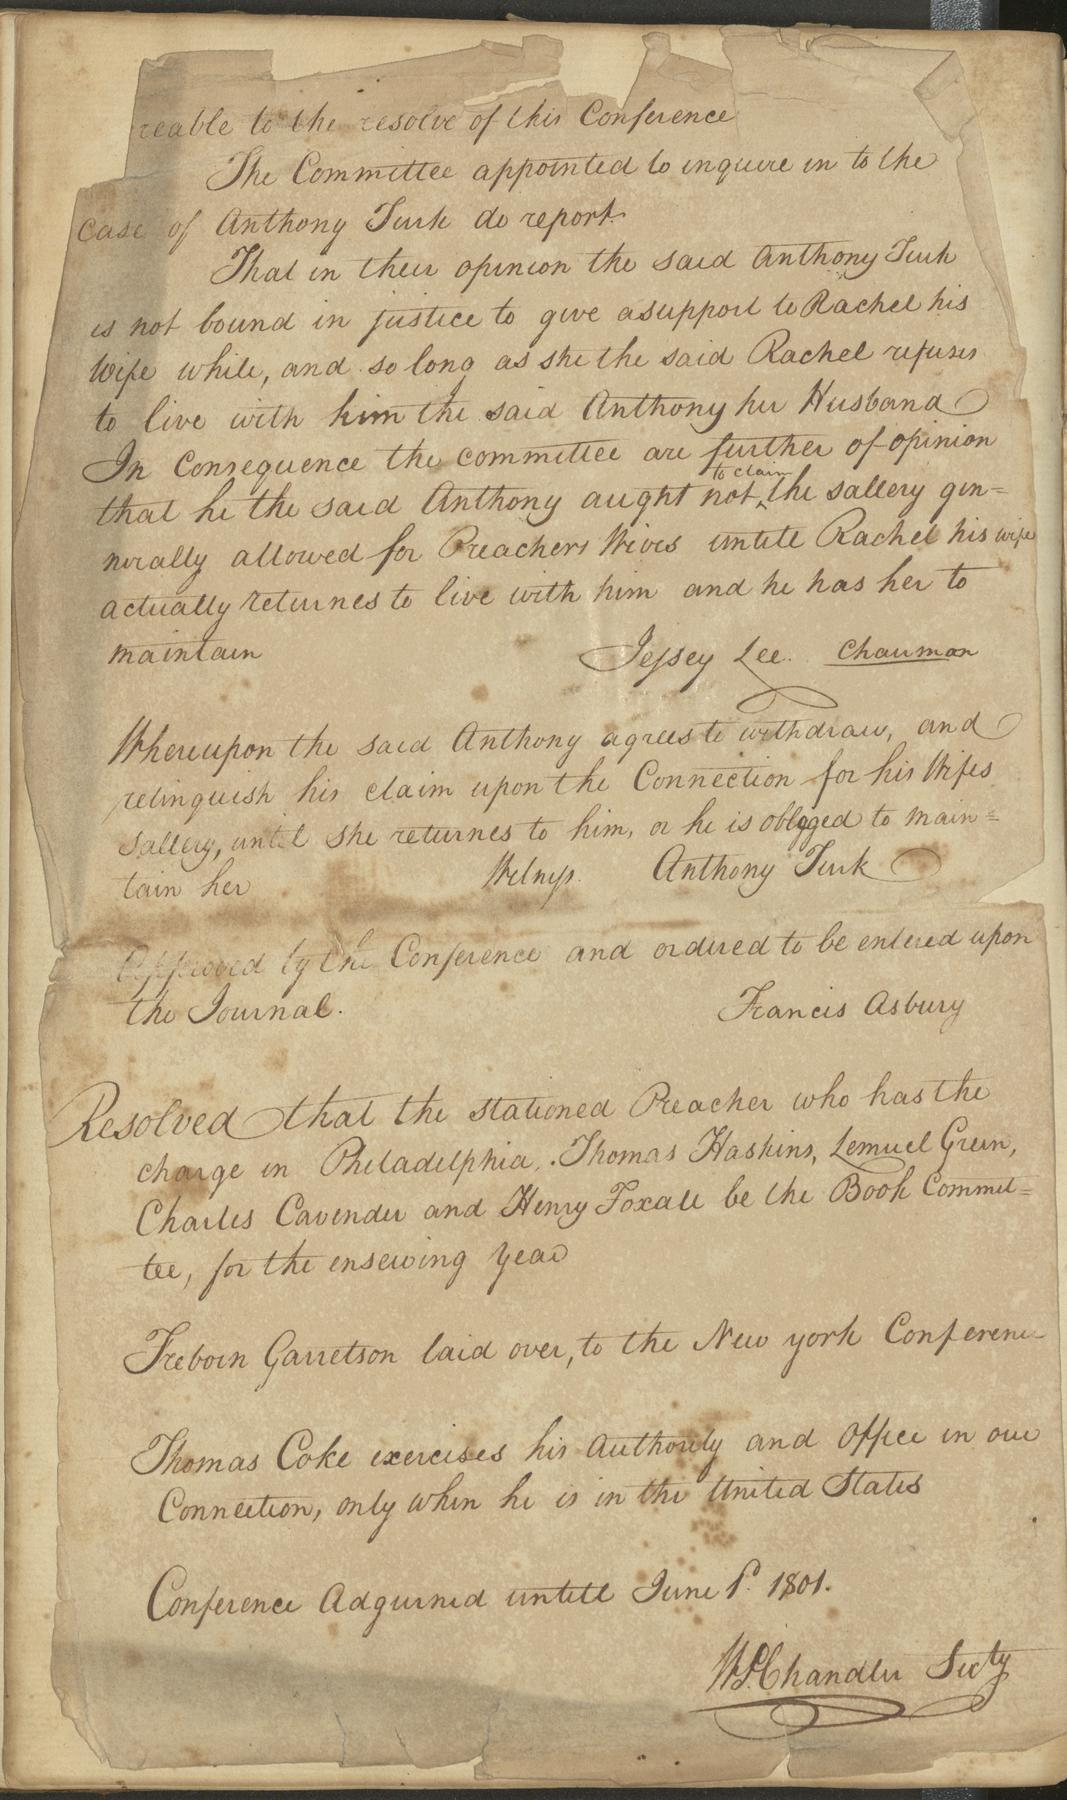 reable to the resolve of this Conference
The Committee appointed to inquire in to the
case of Anthony Turk do report.
That in their opinion the said Anthony Turk
is not bound in justice to give a support to Rachel his
Wife while, and so long as she the said Rachel refuses
to live with him the said Anthony her Husband
In Consequence the committee are further of opinion
that he the said Anthony aught not to claim the sallery gin=
nirally allowed for Preachers Wives untill Rachel his wife
actually returnes to live with him and he has her to
maintain
Jessey Lee. Chairman
Whereupon the said Anthony agrees to withdraw, and
relinquish his claim upon the Connection for his Wifes
Sallery, until she returnes to him, or he is obligged to main=
tain her Witness. Anthony Turk
Approved by the Conference and ordered to be entered upon
the Journal. Francis Asbury
Resolved that the stationed Preacher who has the
charge in Philadelphia, Thomas Haskins, Lemuel Green,
Charles Cavender and Henry Foxall be the Book Commit=
tee, for the enseuing year
Freborn Garretson laid over, to the New york Conference
Thomas Coke exercises his Authority and Office in our
Connection, only when he is in the United States
Conference Adgurned untill June 1st. 1801.
Wm P Chandler Secty